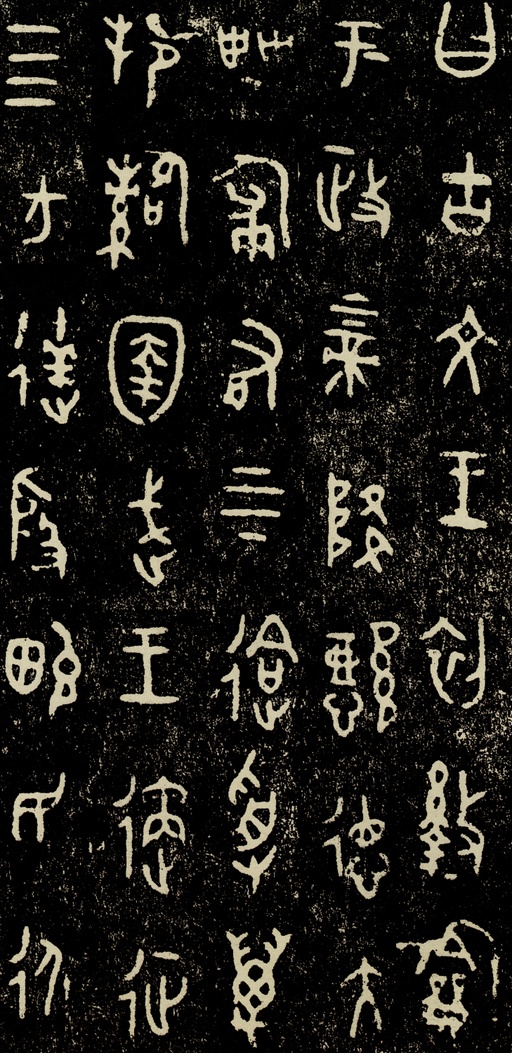 曰古文王初盭龢
于政上帝降懿德大
甹匍有上下迨受萬
邦圉武王遹征
亖方達殷畯民永